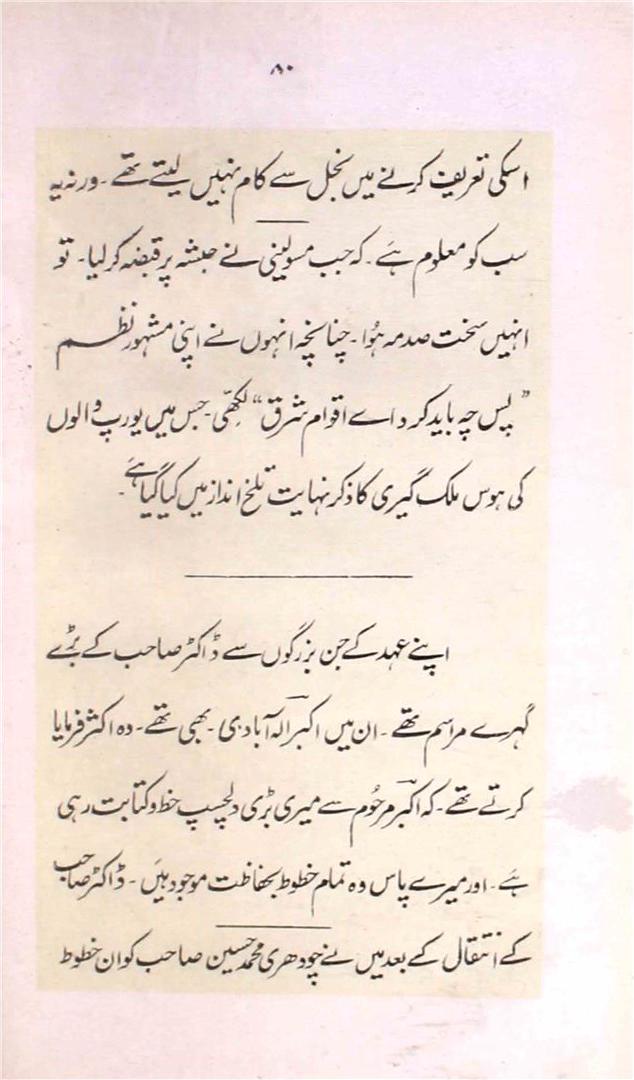 ۸۰
اسکی تعریف کرنے میں بخل سے کام نہیں لیتے تھے۔ ورنہ یہ
سب کو معلوم ہے۔ کہ جب مسولینی نے حبشہ پر قبضہ کر لیا۔ تو
انہیں سخت صدمہ ہُوا۔ چنانچہ انہوں نے اپنی مشہور نظم
”پس چہ باید کرد اے اقوام شرق“ لکھّی۔ جس میں یورپ والوں
کی ہوس ملک گیری کا ذکر نہایت تلخ انداز میں کیا گیا ہے۔
اپنے عہد کے جن بزرگوں سے ڈاکٹر صاحب کے بڑے
گہرے مراسم تھے۔ ان میں اکبر الہ آبادی۔ بھی تھے۔ وہ اکثر فرمایا
کرتے تھے۔ کہ اکبر مرحُوم سے میری بڑی دلچسپ خط و کتابت رہی
ہے۔ اور میرے پاس وہ تمام خطوط بحفاظت موجود ہیں۔ ڈاکٹر صاحب
کے انتقال کے بعد میں نے چودھری محمد حسین صاحب کو ان خطوط